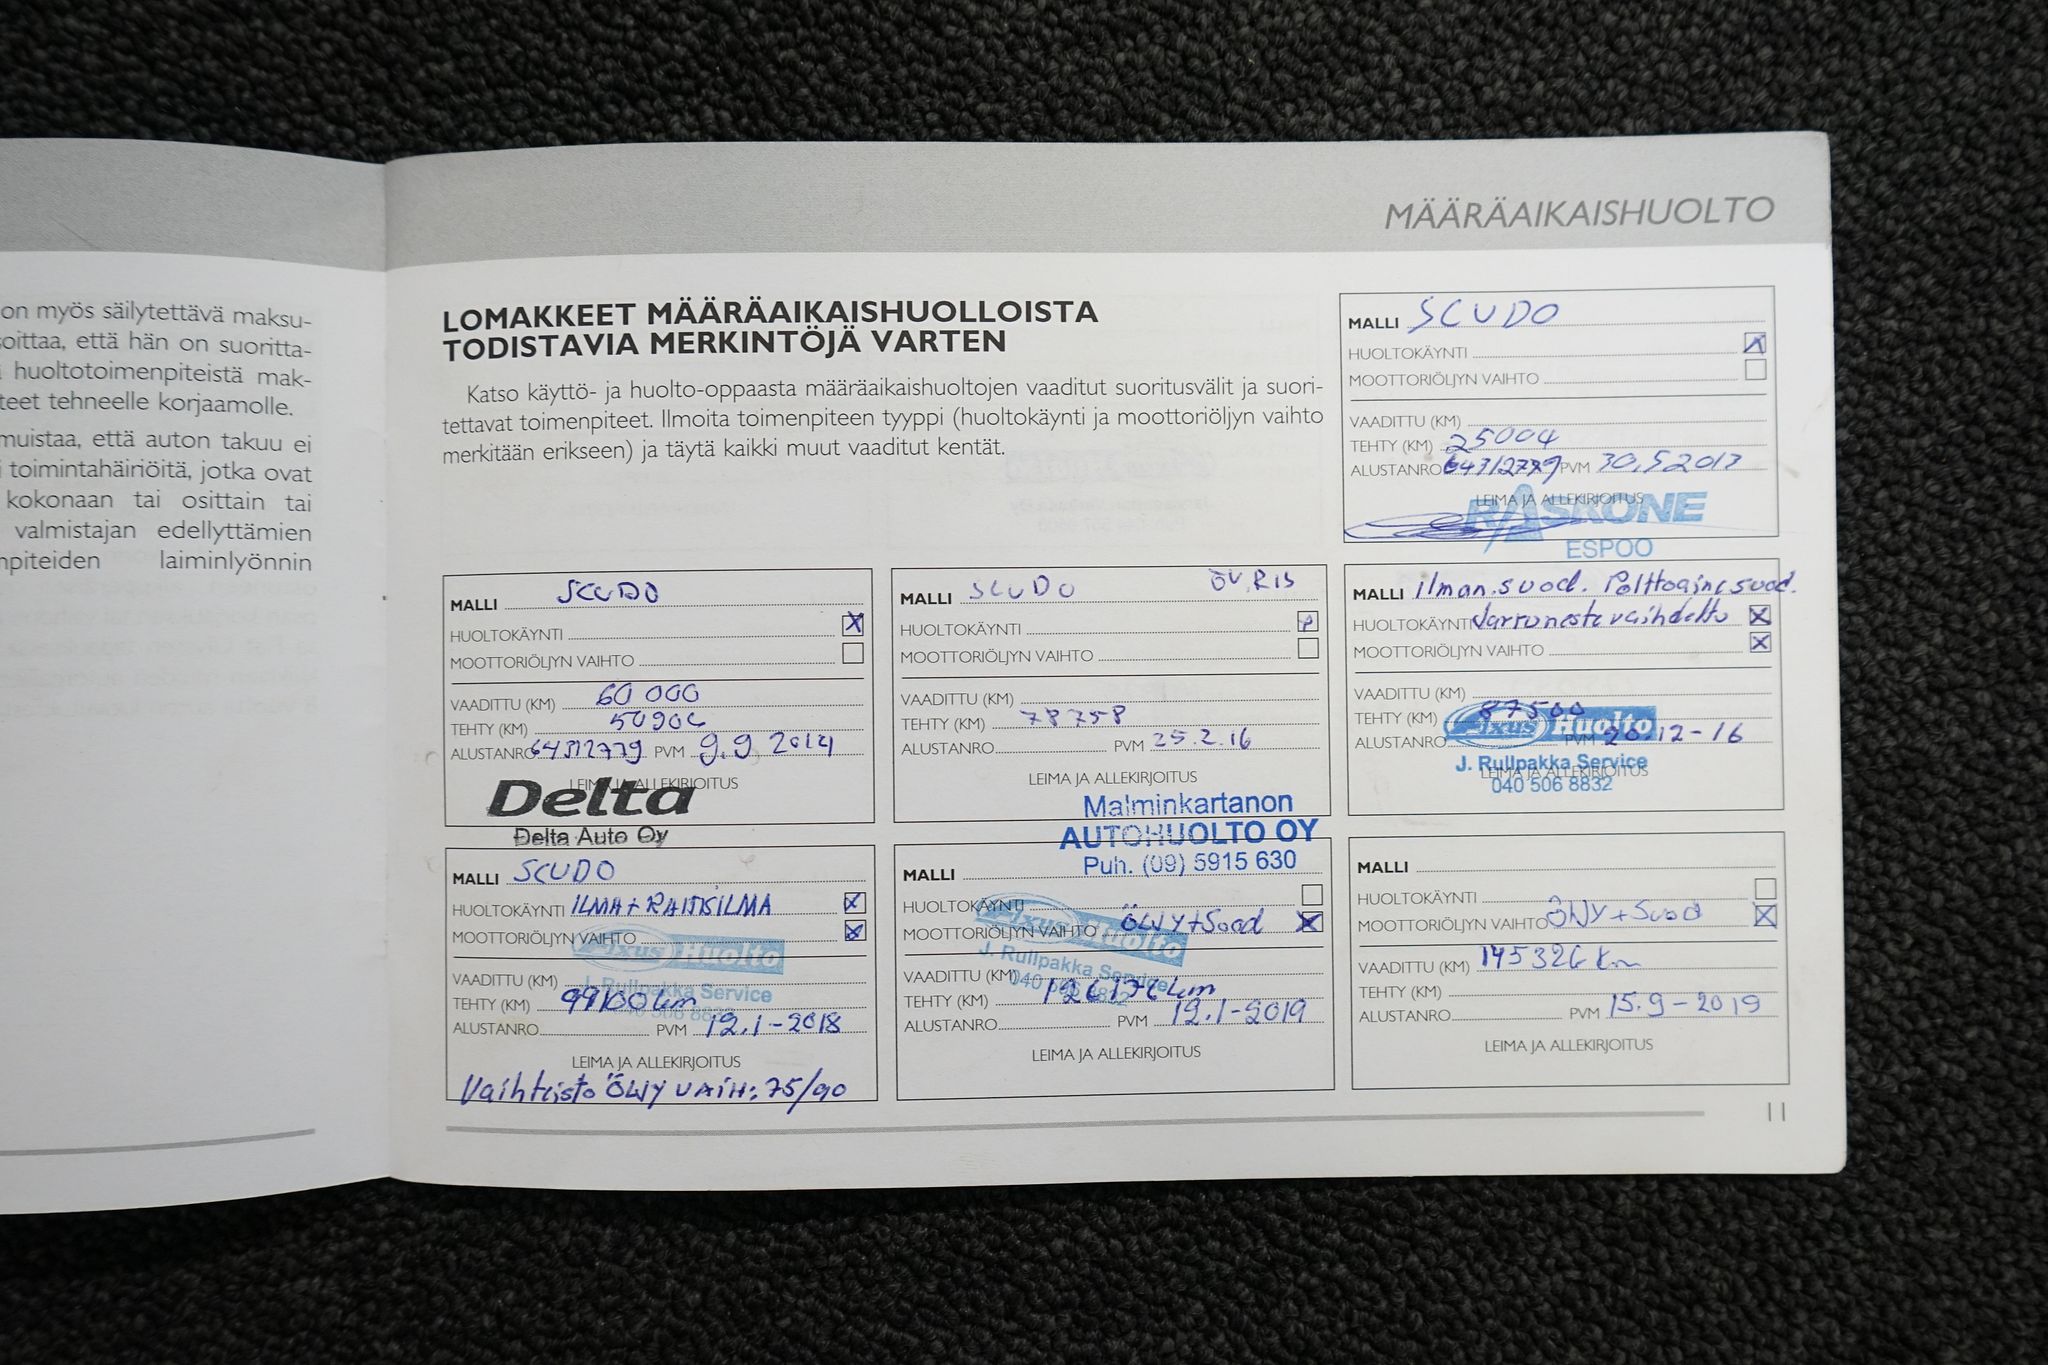 on myös säilytettävä maksu-
soittaa, että hän on suoritta-
huoltotoimenpiteistä mak-
teet tehneelle korjaamolle.
muistaa, että auton takuu ei
toimintahäiriöitä, jotka ovat
kokonaan tai osittain tai
valmistajan edellyttämien
npiteiden laiminlyönnin
MÄÄRÄAIKAISHUOLTO
LOMAKKEET MÄÄRÄAIKAISHUOLLOISTA
TODISTAVIA MERKINTÖJÄ VARTEN
Katso käyttö- ja huolto-oppaasta määräaikaishuoltojen vaaditut suoritusvälit ja suori-
tettavat toimenpiteet. Ilmoita toimenpiteen tyyppi (huoltokäynti ja moottoriöljyn vaihto
merkitään erikseen) ja täytä kaikki muut vaaditut kentät.
MALLI SCUDO
HUOLTOKÄYNTI X
MOOTTORIÖLJYN VAIHTO
VAADITTU (KM)
TEHTY (KM) 25004
ALUSTANRO 64312779 PVM 30.5 2013
LEIMA JA ALLEKIRJOITUS
RASKONE
ESPOO
MALLI SCUDO
HUOLTOKÄYNTI X
MOOTTORIÖLJYN VAIHTO
VAADITTU (KM) 60 000
TEHTY (KM)
ALUSTANRO 64312779 PVM 9.9 2014
LEIMA JA ALLEKIRJOITUS
Delta
Delta Auto Oy
MALLI SCUDO
HUOLTOKÄYNTI
MOOTTORIÖLJYN VAIHTO
VAADITTU (KM)
TEHTY (KM) 78758
ALUSTANRO PVM 25.2.16
LEIMA JA ALLEKIRJOITUS
Malminkartanon
AUTOHUOLTO OY
Puh. (09) 5915 630
MALLI ilman.suod. Polttoaine suod.
HUOLTOKÄYNTI Jarruneste vaihdettu X
MOOTTORIÖLJYN VAIHTO X
VAADITTU (KM)
TEHTY (KM) 87500
Fixus Huolto
ALUSTANRO PVM 20.12-16
J. Rullpakka Service
LEIMA JA ALLEKIRJOITUS
040 506 8832
MALLI SCUDO
HUOLTOKÄYNTI ILMA + RAITISILMA X
MOOTTORIÖLJYN VAIHTO X
Fixus Huolto
VAADITTU (KM)
J. Rullpakka Service
TEHTY (KM) 99100 km
040 506 8832
ALUSTANRO PVM 12.1-2018
LEIMA JA ALLEKIRJOITUS
Vaihteisto ÖLJY VAIH: 75/90
MALLI
HUOLTOKÄYNTI
MOOTTORIÖLJYN VAIHTO ÖLJY + Suod X
Fixus Huolto
J. Rullpakka Service
VAADITTU (KM)
040 506 8832
TEHTY (KM) km
ALUSTANRO PVM 12.1-2019
LEIMA JA ALLEKIRJOITUS
MALLI
HUOLTOKÄYNTI
MOOTTORIÖLJYN VAIHTO ÖLJY + Suod X
VAADITTU (KM) 145326 km
TEHTY (KM)
ALUSTANRO PVM 15.9-2019
LEIMA JA ALLEKIRJOITUS
11